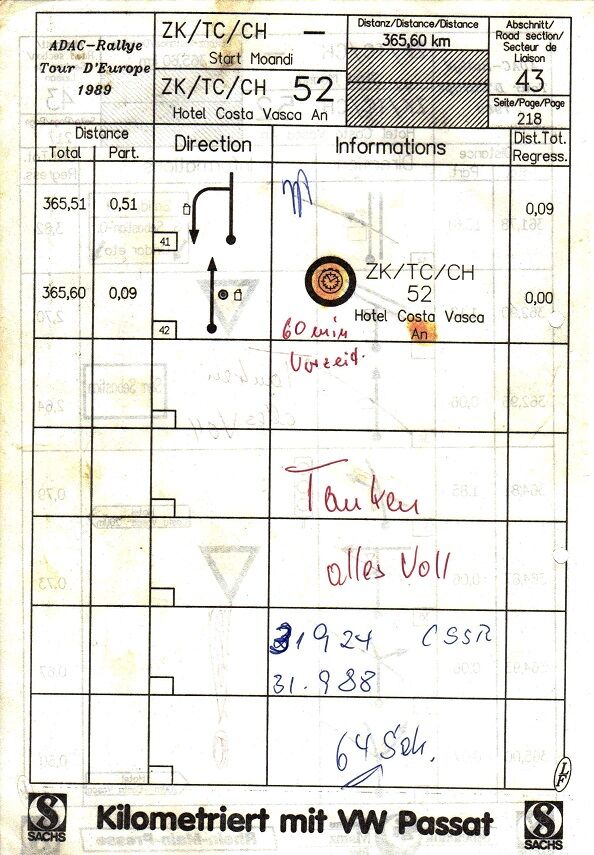 ADAC-Rallye
Tour D'Europe
1989
ZK/TC/CH –
Start Moandi
ZK/TC/CH 52
Hotel Costa Vasca An
Distanz/Distance/Distance
365,60 km
Abschnitt/
Road section/
Secteur de
Liaison
43
Seite/Page/Page
218
Distance
Total Part.
Direction
Informations
Dist.Tot.
Regress.
365,51 0,51
41
0,09
365,60 0,09
42
ZK/TC/CH
52
Hotel Costa Vasca
An
0,00
60 min
Vorzeit.
Tanken
alles Voll
31924 CSSR
31.988
64 Sek.
SACHS
Kilometriert mit VW Passat
SACHS